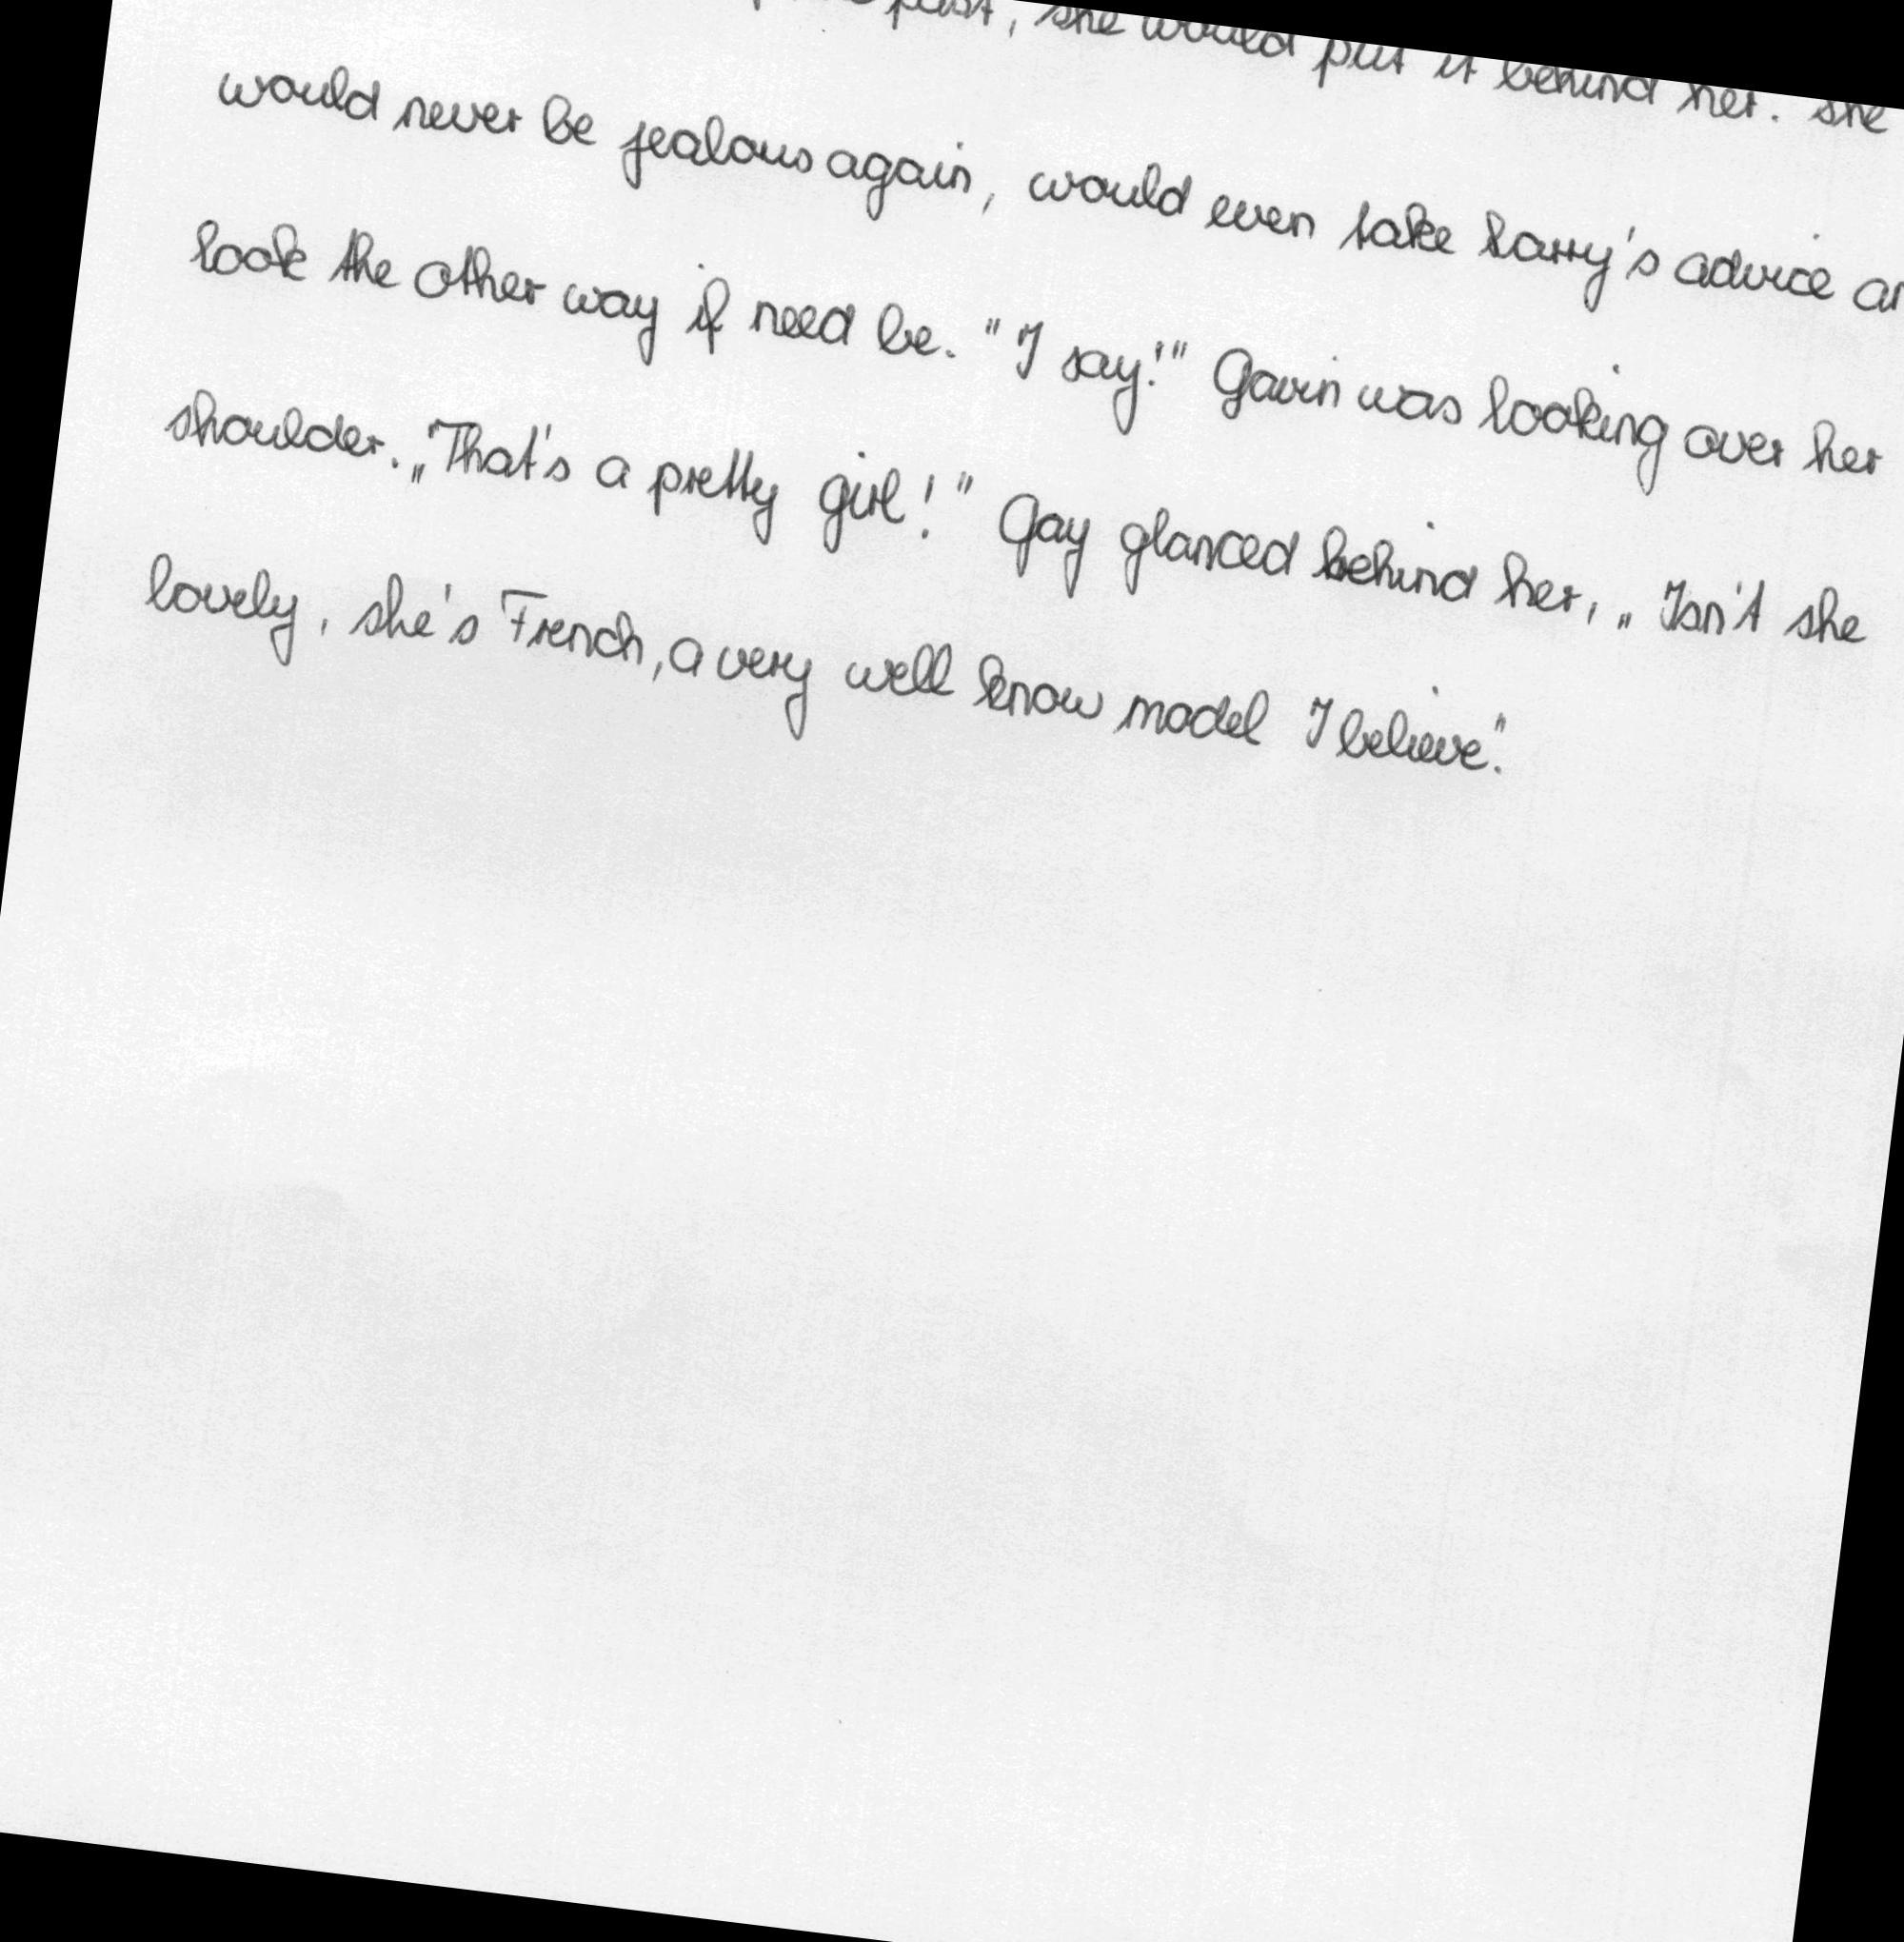 past, she would put it behind her. She
would never be jealous again, would even take Larry's advice
look the other way if need be. "I say!" Gavin was looking over her
shoulder. „That's a pretty girl!" Gay glanced behind her, „Isn't she
lovely, she's French, a very well know model I believe."